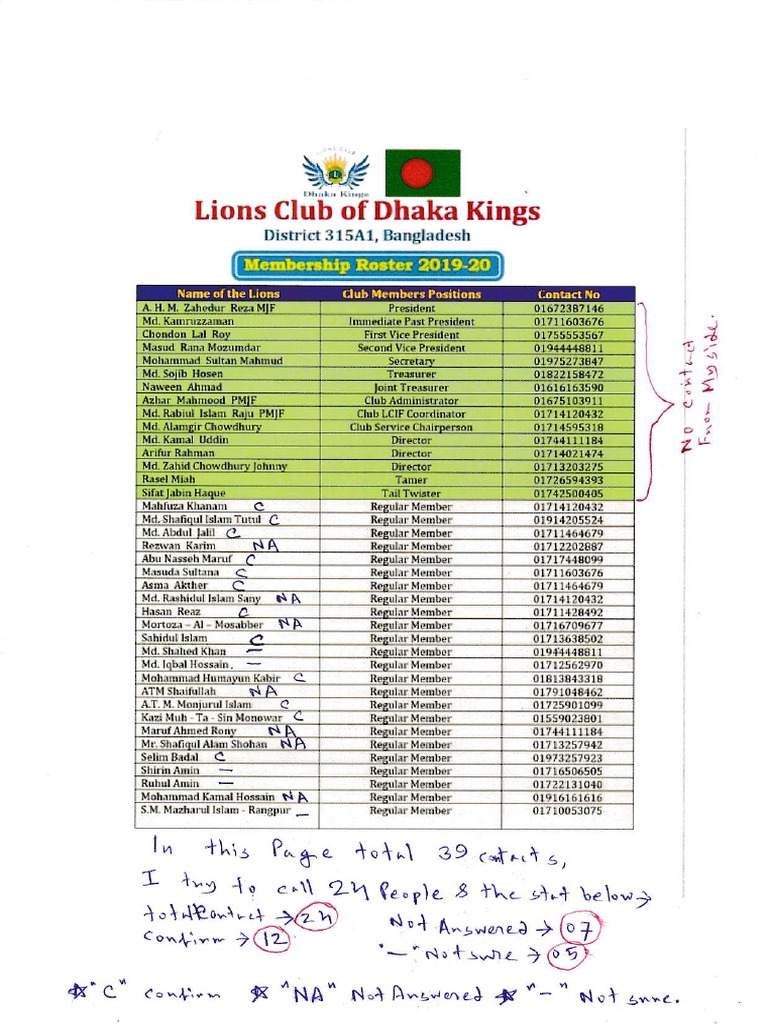 LIONS CLUB
Dhaka Kings
Lions Club of Dhaka Kings
District 315A1, Bangladesh
Membership Roster 2019-20
Name of the Lions Club Members Positions Contact No
A. H. M. Zahedur Reza MJF President 01672387146
Md. Kamruzzaman Immediate Past President 01711603676
Chondon Lal Roy First Vice President 01755553567
Masud Rana Mozumdar Second Vice President 01944448811
Mohammad Sultan Mahmud Secretary 01975273847
Md. Sojib Hosen Treasurer 01822158472
Naween Ahmad Joint Treasurer 01616163590
Azhar Mahmood PMJF Club Administrator 01675103911
Md. Rabiul Islam Raju PMJF Club LCIF Coordinator 01714120432
Md. Alamgir Chowdhury Club Service Chairperson 01714595318
Md. Kamal Uddin Director 01744111184
Arifur Rahman Director 01714021474
Md. Zahid Chowdhury Johnny Director 01713203275
Rasel Miah Tamer 01726594393
Sifat Jabin Haque Tail Twister 01742500405
NO Contact
From My side.
Mahfuza Khanam C Regular Member 01714120432
Md. Shafiqul Islam Tutul C Regular Member 01914205524
Md. Abdul Jalil C Regular Member 01711464679
Rezwan Karim NA Regular Member 01712202887
Abu Nasseh Maruf C Regular Member 01717448099
Masuda Sultana C Regular Member 01711603676
Asma Akther C Regular Member 01711464679
Md. Rashidul Islam Sany NA Regular Member 01714120432
Hasan Reaz C Regular Member 01711428492
Mortoza – Al – Mosabber NA Regular Member 01716709677
Sahidul Islam C Regular Member 01713638502
Md. Shahed Khan — Regular Member 01944448811
Md. Iqbal Hossain. — Regular Member 01712562970
Mohammad Humayun Kabir C Regular Member 01813843318
ATM Shaifullah NA Regular Member 01791048462
A.T. M. Monjurul Islam C Regular Member 01725901099
Kazi Muh - Ta - Sin Monowar C Regular Member 01559023801
Maruf Ahmed Rony NA Regular Member 01744111184
Mr. Shafiqul Alam Shohan NA Regular Member 01713257942
Selim Badal C Regular Member 01973257923
Shirin Amin — Regular Member 01716506505
Ruhul Amin — Regular Member 01722131040
Mohammad Kamal Hossain NA Regular Member 01916161616
S.M. Mazharul Islam - Rangpur — Regular Member 01710053075
In this Page total 39 contacts,
I try to call 24 People & the stat below →
total contact → 24 Not Answered → 07
confirm → 12 "—" Not sure → 05
"C" confirm "NA" Not Answered "—" Not sure.